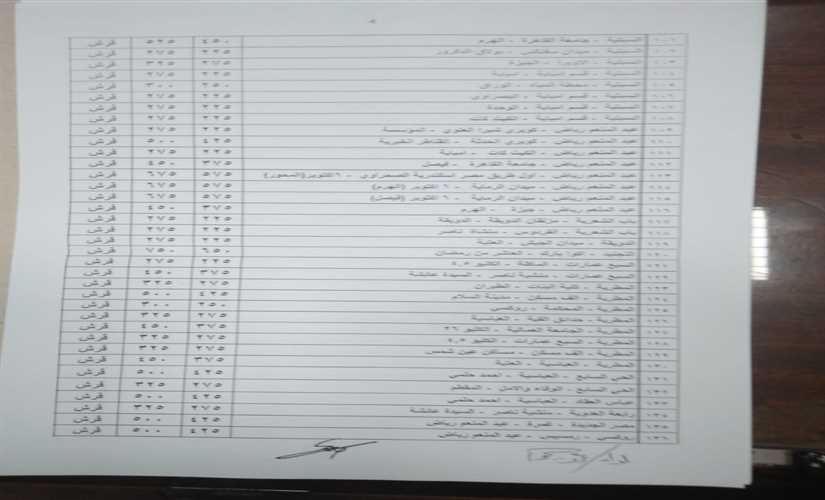 ١٠١ السبتية - جامعة القاهرة - الهرم ٤٥٠ ٥٢٥ قرش
١٠٢ السبتية - ميدان سفنكس - بولاق الدكرور ٢٢٥ ٢٧٥ قرش
١٠٣ السبتية - الاوبرا - الجيزة ٢٧٥ ٣٢٥ قرش
١٠٤ السبتية - قسم امبابة - امبابة ٢٢٥ ٢٧٥ قرش
١٠٥ السبتية - محطة المياه - الوراق ٢٥٠ ٣٠٠ قرش
١٠٦ السبتية - قسم امبابة - البصراوى ٢٢٥ ٢٧٥ قرش
١٠٧ السبتية - قسم امبابة - الوحدة ٢٢٥ ٢٧٥ قرش
١٠٨ السبتية - قسم امبابة - الكيت كات ٢٢٥ ٢٧٥ قرش
١٠٩ عبد المنعم رياض - كوبرى شبرا العلوى - المؤسسة ٢٢٥ ٢٧٥ قرش
١١٠ عبد المنعم رياض - كوبرى - القناطر الخيرية ٤٢٥ ٥٠٠ قرش
١١١ عبد المنعم رياض - الكيت كات - امبابة ٢٢٥ ٢٧٥ قرش
١١٢ عبد المنعم رياض - جامعة القاهرة - فيصل ٣٧٥ ٤٥٠ قرش
١١٣ عبد المنعم رياض - اول طريق مصر اسكندرية الصحراوى - ٦ اكتوبر(المحور) ٥٧٥ ٦٧٥ قرش
١١٤ عبد المنعم رياض - ميدان الرماية - ٦ اكتوبر (الهرم) ٥٧٥ ٦٧٥ قرش
١١٥ عبد المنعم رياض - ميدان الرماية - ٦ اكتوبر (فيصل) ٥٧٥ ٦٧٥ قرش
١١٦ عبد المنعم رياض - جيزة - الهرم ٣٧٥ ٤٥٠ قرش
١١٧ باب الشعرية - مزلقان الدويقة - الدويقة ٢٢٥ ٢٧٥ قرش
١١٨ باب الشعرية - الفردوس - منشاة ناصر ٢٢٥ ٢٧٥ قرش
١١٩ الدويقة - ميدان الجيش - العتبة ٢٢٥ ٢٧٥ قرش
١٢٠ التجنيد - اكوا بارك - العاشر من رمضان ٦٥٠ ٧٥٠ قرش
١٢١ السبع عمارات - الماظة - الكيلو ٤.٥ ٢٢٥ ٢٧٥ قرش
١٢٢ السبع عمارات - منشية ناصر - السيدة عائشة ٣٧٥ ٤٥٠ قرش
١٢٣ المطرية - كلية البنات - الطيران ٢٧٥ ٣٢٥ قرش
١٢٤ المطرية - الف مسكن - مدينة السلام ٤٢٥ ٥٠٠ قرش
١٢٥ المطرية - المحكمة - روكسي ٢٥٠ ٣٠٠ قرش
١٢٦ المطرية - حدائق القبة - العباسية ٢٧٥ ٣٢٥ قرش
١٢٧ المطرية - الجامعة العمالية - الكيلو ٢٦ ٣٧٥ ٤٥٠ قرش
١٢٨ المطرية - السبع عمارات - الكيلو ٤.٥ ٢٧٥ ٣٢٥ قرش
١٢٩ المطرية - الف مسكن - مساكن عين شمس ٢٧٥ ٣٢٥ قرش
١٣٠ المطرية - العباسية - العتبة ٣٧٥ ٤٥٠ قرش
١٣١ الحي السابع - العباسية - احمد حلمي ٤٢٥ ٥٠٠ قرش
١٣٢ الحي السابع - الوفاء والامل - المقطم ٢٧٥ ٣٢٥ قرش
١٣٣ عباس العقاد - العباسية - احمد حلمي ٤٢٥ ٥٠٠ قرش
١٣٤ رابعة العدوية - منشية ناصر - السيدة عائشة ٢٧٥ ٣٢٥ قرش
١٣٥ مصر الجديدة - غمرة - عبد المنعم رياض ٤٢٥ ٥٠٠ قرش
١٣٦ روكسي - رمسيس - عبد المنعم رياض ٤٢٥ ٥٠٠ قرش